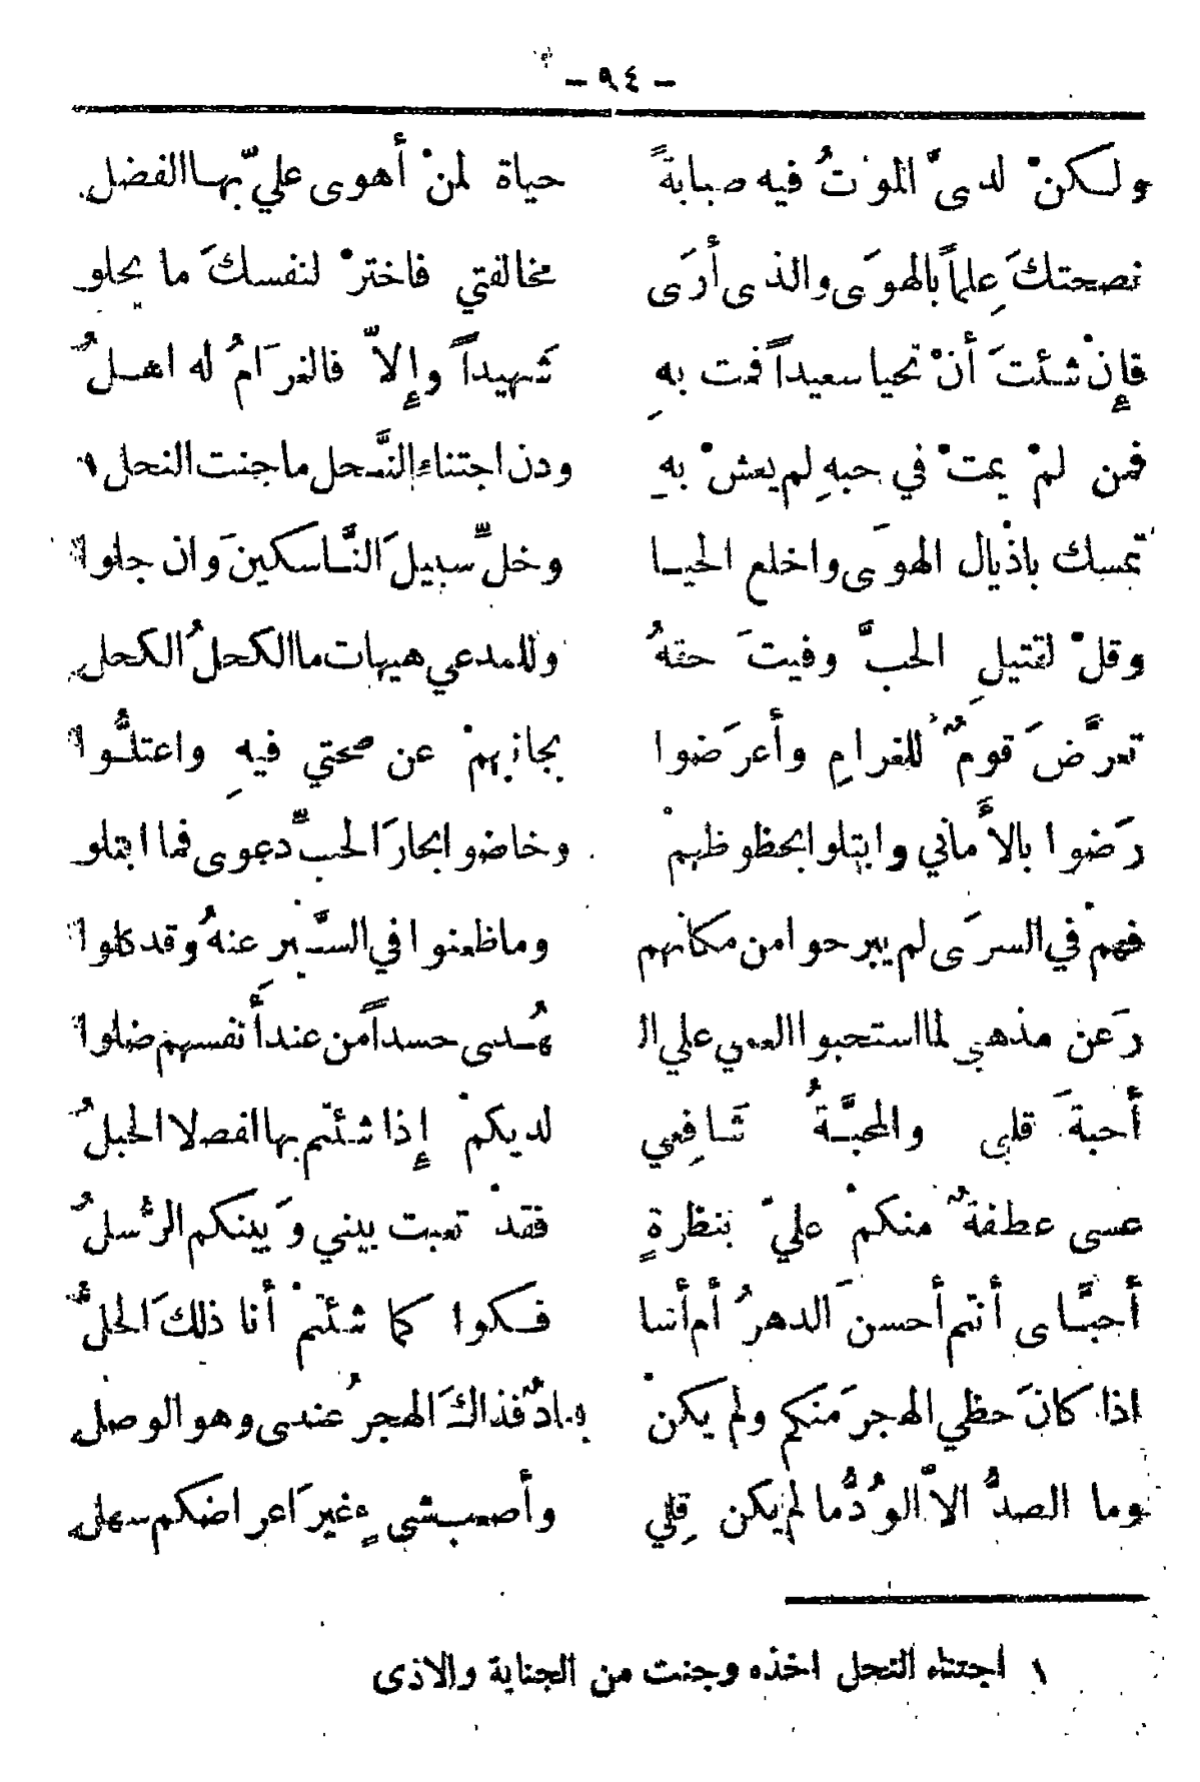 - ٩٤ -
ولكنْ لديَّ الموْتُ فيه صبابةً حياة لمنْ أهوى عليّ بها الفضل
نصحتكَ عِلماً بالهوَى والذى أرَى مخالفتي فاخترْ لنفسكَ ما يحلو
فإِنْ شئتَ أنْ تحيا سعيداً فمت بهِ شَهيداً وإِلاّ فالغرَامُ له اهلُ
فمن لمْ يمتْ في حبهِ لم يعشْ بهِ ودن اجتناءِ النَّحل ما جنت النحل ١
تمسك باذْيال الهوَى واخلع الحيا وخلِّ سبيلَ النَّاسكينَ وان جلوا
وقلْ لقتيلِ الحبَّ وفيتَ حقهُ وللمدعي هيهات ما الكحلُ الكحل
تعرَّضَ قومٌ للغرامِ وأعرَضوا بجانبهمْ عن صحتي فيهِ واعتلُّوا
رَضوا بالأَماني وابتلوا بحظوظهمْ وخاضوا بحارَ الحبِّ دعوى فما ابتلو
فهمْ في السرَى لم يبرحوا من مكانهم وما ظعنوا في السَّيرِ عنهُ وقد كلوا
رَعن مذهبي لما استحبوا العمي علي ال هُدى حسداً من عند أَنفسهم ضلوا
أحبةَ قلبي والمحبَّةُ شَافِعي لديكمْ إِذا شئتم بها اتصل الحبلُ
عسى عطفةٌ منكمْ عليّ بنظرةٍ فقدْ تعبت بيني وَبينكم الرُّسلُ
أحبَّاى أنتم أحسنَ الدهرُ أم أسا فكوا كما شئتمْ أنا ذلكَ الخلُّ
اذا كانَ حظي الهجرَ منكم ولم يكنْ بعادٌ فذاكَ الهجرُ عندى وهو الوصل
وما الصدُّ الاَّ الوُدُّ ما لم يكن قِلي وأصعب شيءٍ غيرَ اعراضكم سهل
١ اجتناء النحل اخذه وجنت من الجناية والاذى